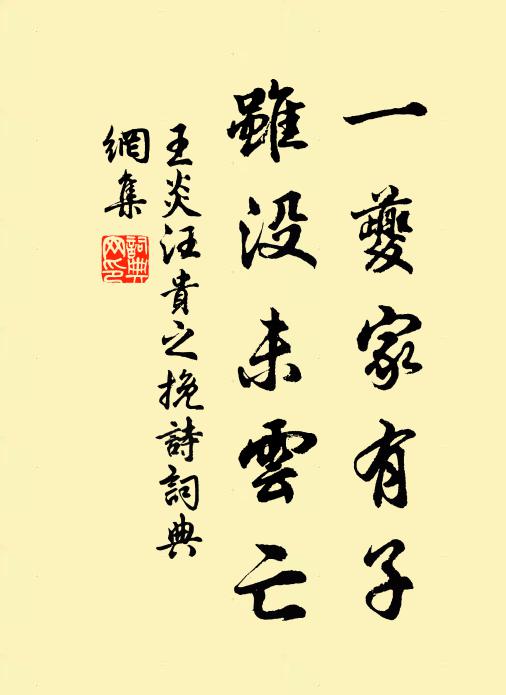 一夔家有子
雖没未雲亡
王炎汪貴之挽詩詞典
網集
詞典網印